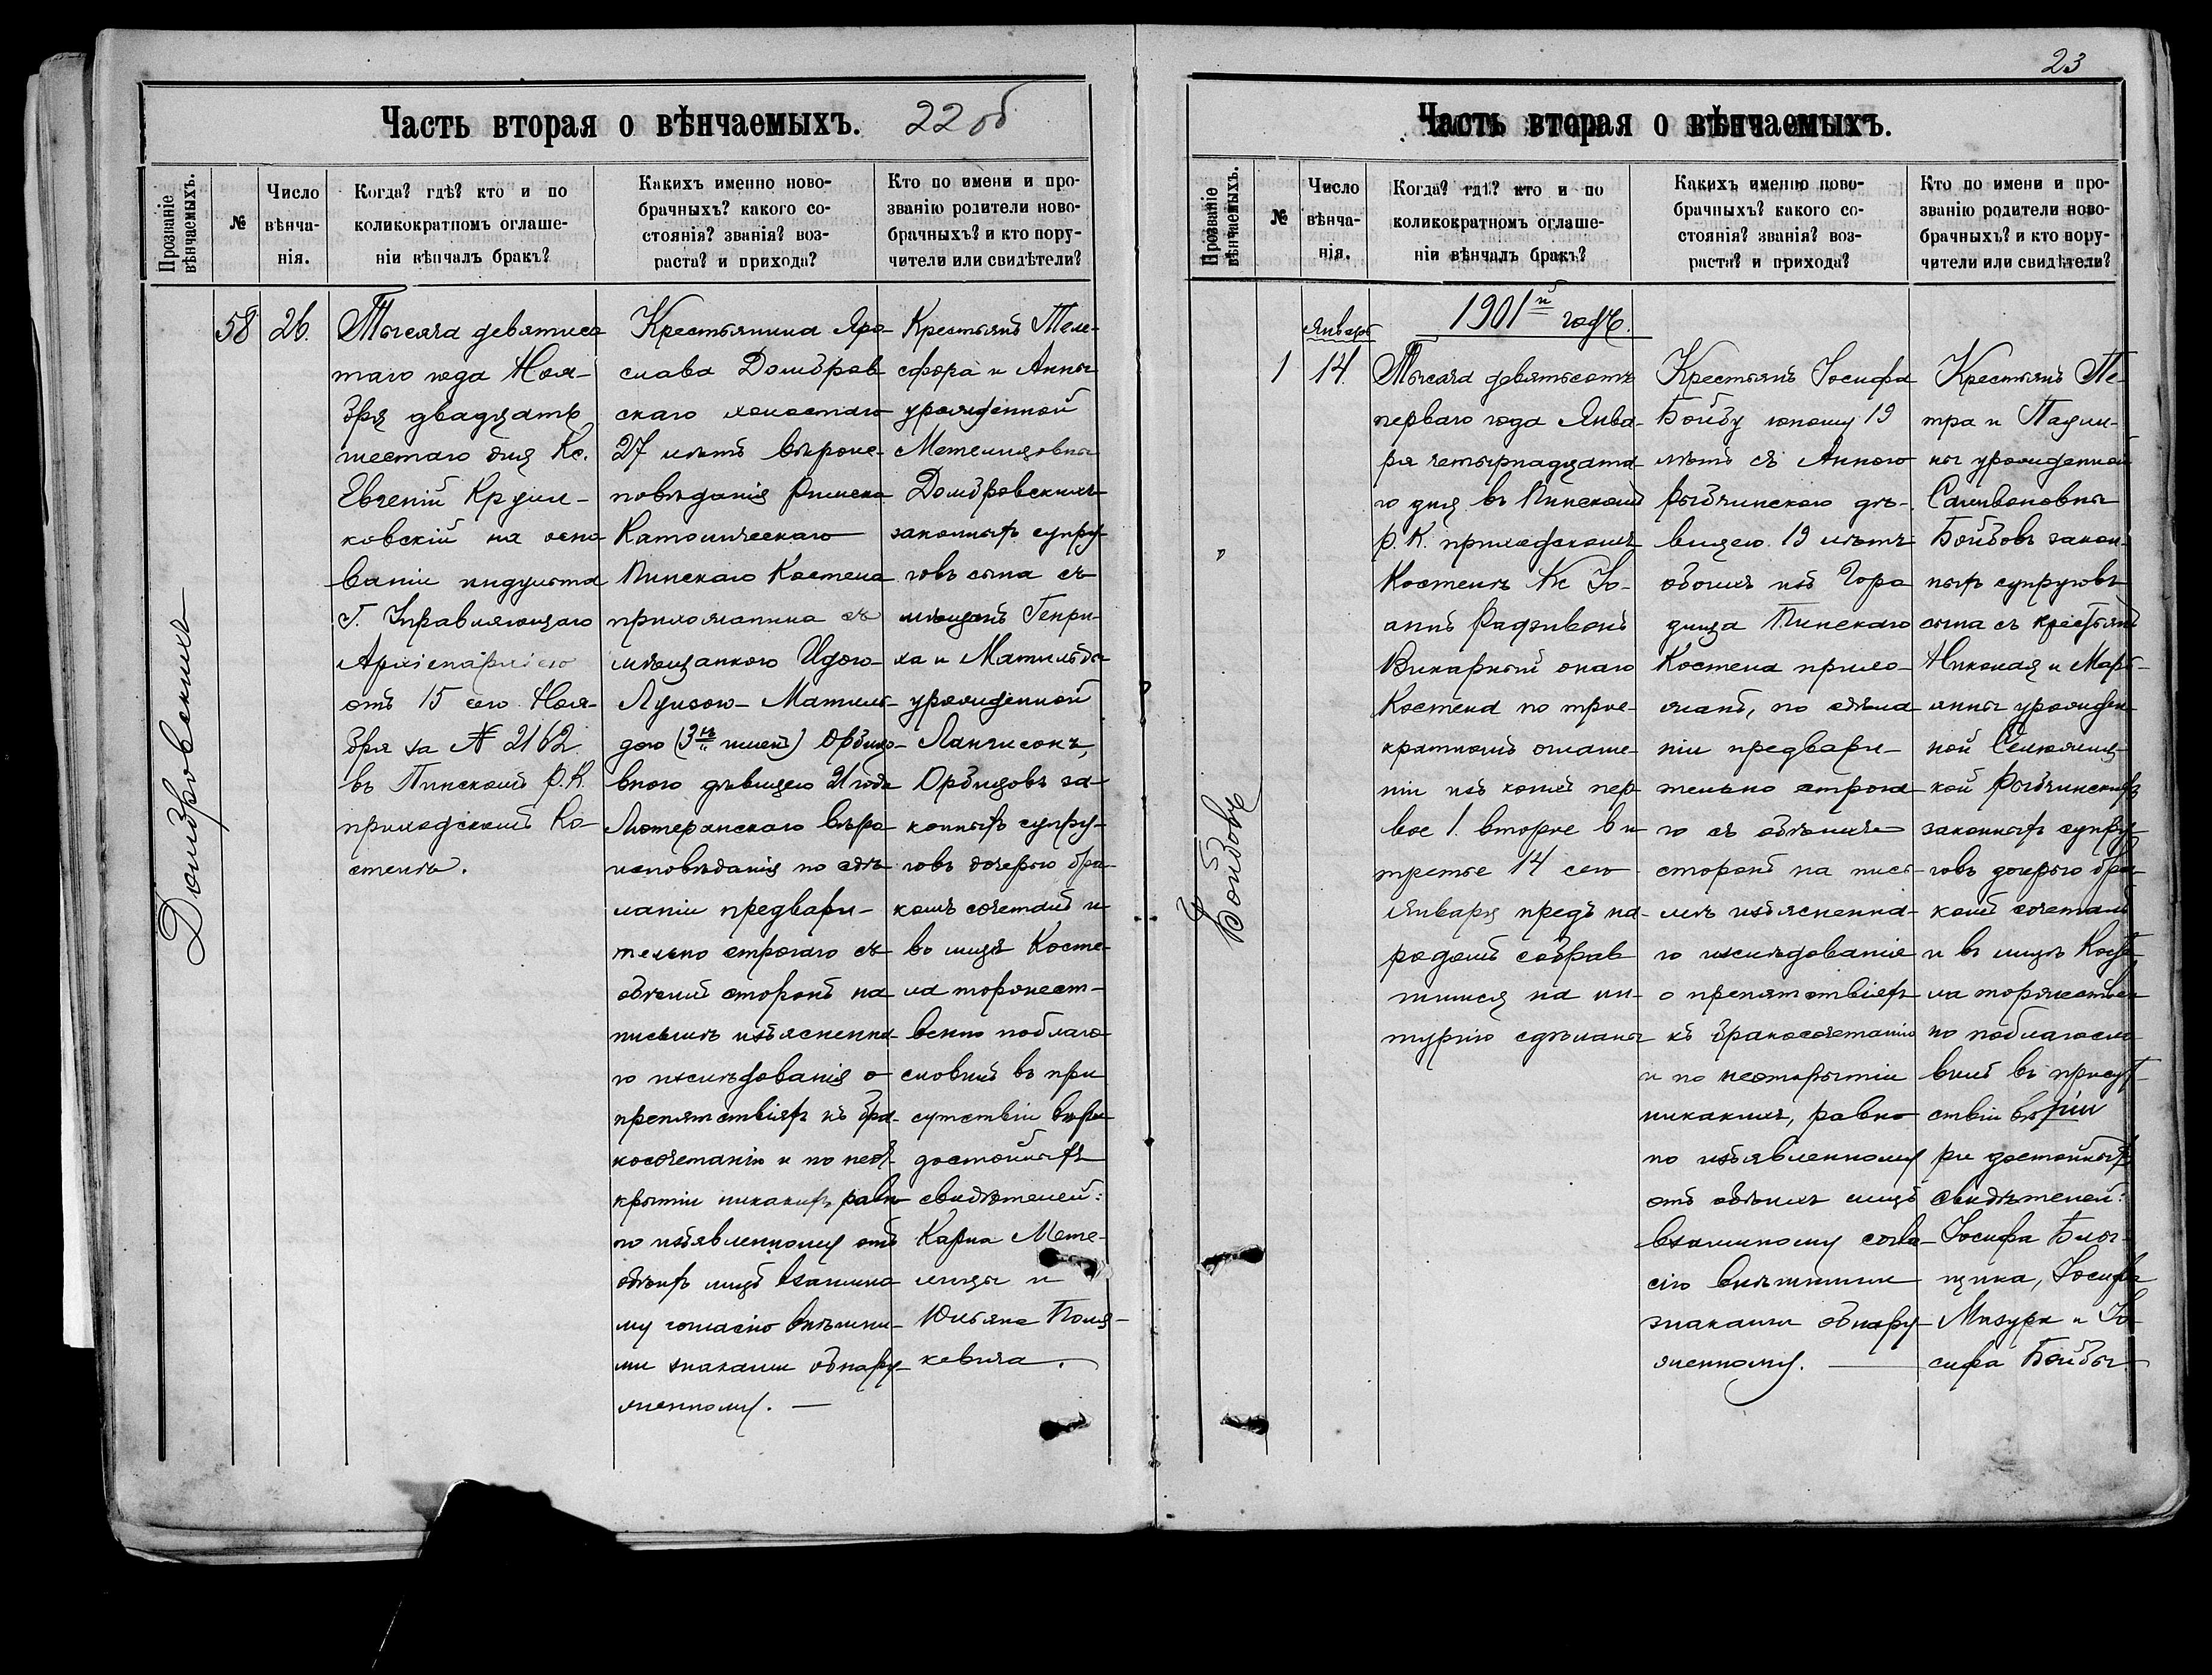 Часть вторая о вѣнчаемыхъ.
22 об
Прозваніе вѣнчаемыхъ.
№
Число
вѣнча-
нія.
Когда? гдѣ? кто и по
коликократномъ оглаше-
ніи вѣнчалъ бракъ?
Какихъ именно ново-
брачныхъ? какого со-
стоянія? званія? воз-
раста? и прихода?
Кто по имени и про-
званію родители ново-
брачныхъ? и кто пору-
чители или свидѣтели?
Домбровскихъ
58
26.
Тысяча девятисо
таго года Ноя-
бря двадцать
шестаго дня Кс.
Евгеній Круш-
ковскій на осно
ваніи индульта
Г. Управляющаго
от 15 сего Ноя-
бря за № 2162
въ Пинскомъ Р. К.
приходскомъ Ко-
стелѣ.
Крестьянина Яро-
слава Домбров
скаго холостаго
27 лѣтъ вѣроис-
повѣданія Римско
Католическаго
Пинскаго Костела
прихожанина съ
мѣщанкою Идою-
Луизою-Матиль-
дою (3хъ именъ)
вною дѣвицею 21 года
Лютеранскаго вѣро
исповѣданія по сдѣ
ланіи предвари-
тельно строгаго съ
обѣихъ сторонъ на
письмѣ изъясненна-
го изслѣдованія о
препятствіяхъ къ бра-
косочетанію и по неот-
крытіи никакихъ, равно
по изъявленному отъ
обѣихъ лицъ взаимно
му согласію внѣшни-
ми знаками обнару-
женному. —
Крестьянъ Теле-
сфора и Анны
урожденной
Метелицовны
Домбровскихъ
законныхъ супру-
говъ сына съ
мѣщанъ Генри-
ха и Матильды
урожденной
за-
конныхъ супру-
говъ дочерью бра-
комъ сочеталъ и
въ лицѣ Косте-
ла торжест-
венно поблаго-
словилъ въ при
сутствіи вѣры
достойныхъ
свидѣтелей:
Карла Мете-
лицы и
Юльяна Поля-
кевича.
23
Часть вторая о вѣнчаемыхъ.
Прозваніе вѣнчаемыхъ.
№
Число
вѣнча-
нія.
Когда? гдѣ? кто и по
коликократномъ оглаше-
ніи вѣнчалъ бракъ?
Какихъ именно ново-
брачныхъ? какого со-
стоянія? званія? воз-
раста? и прихода?
Кто по имени и про-
званію родители ново-
брачныхъ? и кто пору-
чители или свидѣтели?
1901й годъ.
Январь
Бойбовъ
1
14.
Тысяча девятьсотъ
перваго года Янва-
ря четырнадцата-
го дня въ Пинскомъ
Р. К. приходскомъ
Костелѣ Кс Іо-
аннъ
Викарный онаго
Костела по трое-
кратномъ оглаше-
ніи изъ коихъ пер-
вое 1. второе 6 и
третье 14 сего
Января предъ на-
родомъ собрав
шимся на ли-
тургію сдѣланы
Крестьянъ Іосифа
Бойбу юношу 19
лѣтъ съ Анною
Рыбчинскою дѣ-
вицею 19 лѣтъ
обоихъ изъ Горо
дища Пинскаго
Костела прихо-
жанъ, по сдѣла
ніи предвари-
тельно строга
го съ обѣихъ
сторонъ на пись-
мѣ изъясненна-
го изслѣдованія
о препятствіяхъ
къ бракосочетанію
и по неоткрытіи
никакихъ, равно
по изъявленному
отъ обѣихъ лицъ
взаимному согла
сію внѣшними
знаками обнару-
женному. —
Крестьянъ Пе-
тра и Паули-
ны урожденной
Бойбовъ закон-
ныхъ супруговъ
сына съ крестьянъ
Николая и Марь-
янны урожден-
ной
кой Рыбчинскихъ
законныхъ супру
говъ дочерью бра-
комъ сочеталъ
и въ лицѣ Косте
ла торжествен
но поблагосло
вилъ въ присут
ствіи
ры достойныхъ
свидѣтелей:
Іосифа
Іосифа
Мазура и Іо-
сифа Бойбы